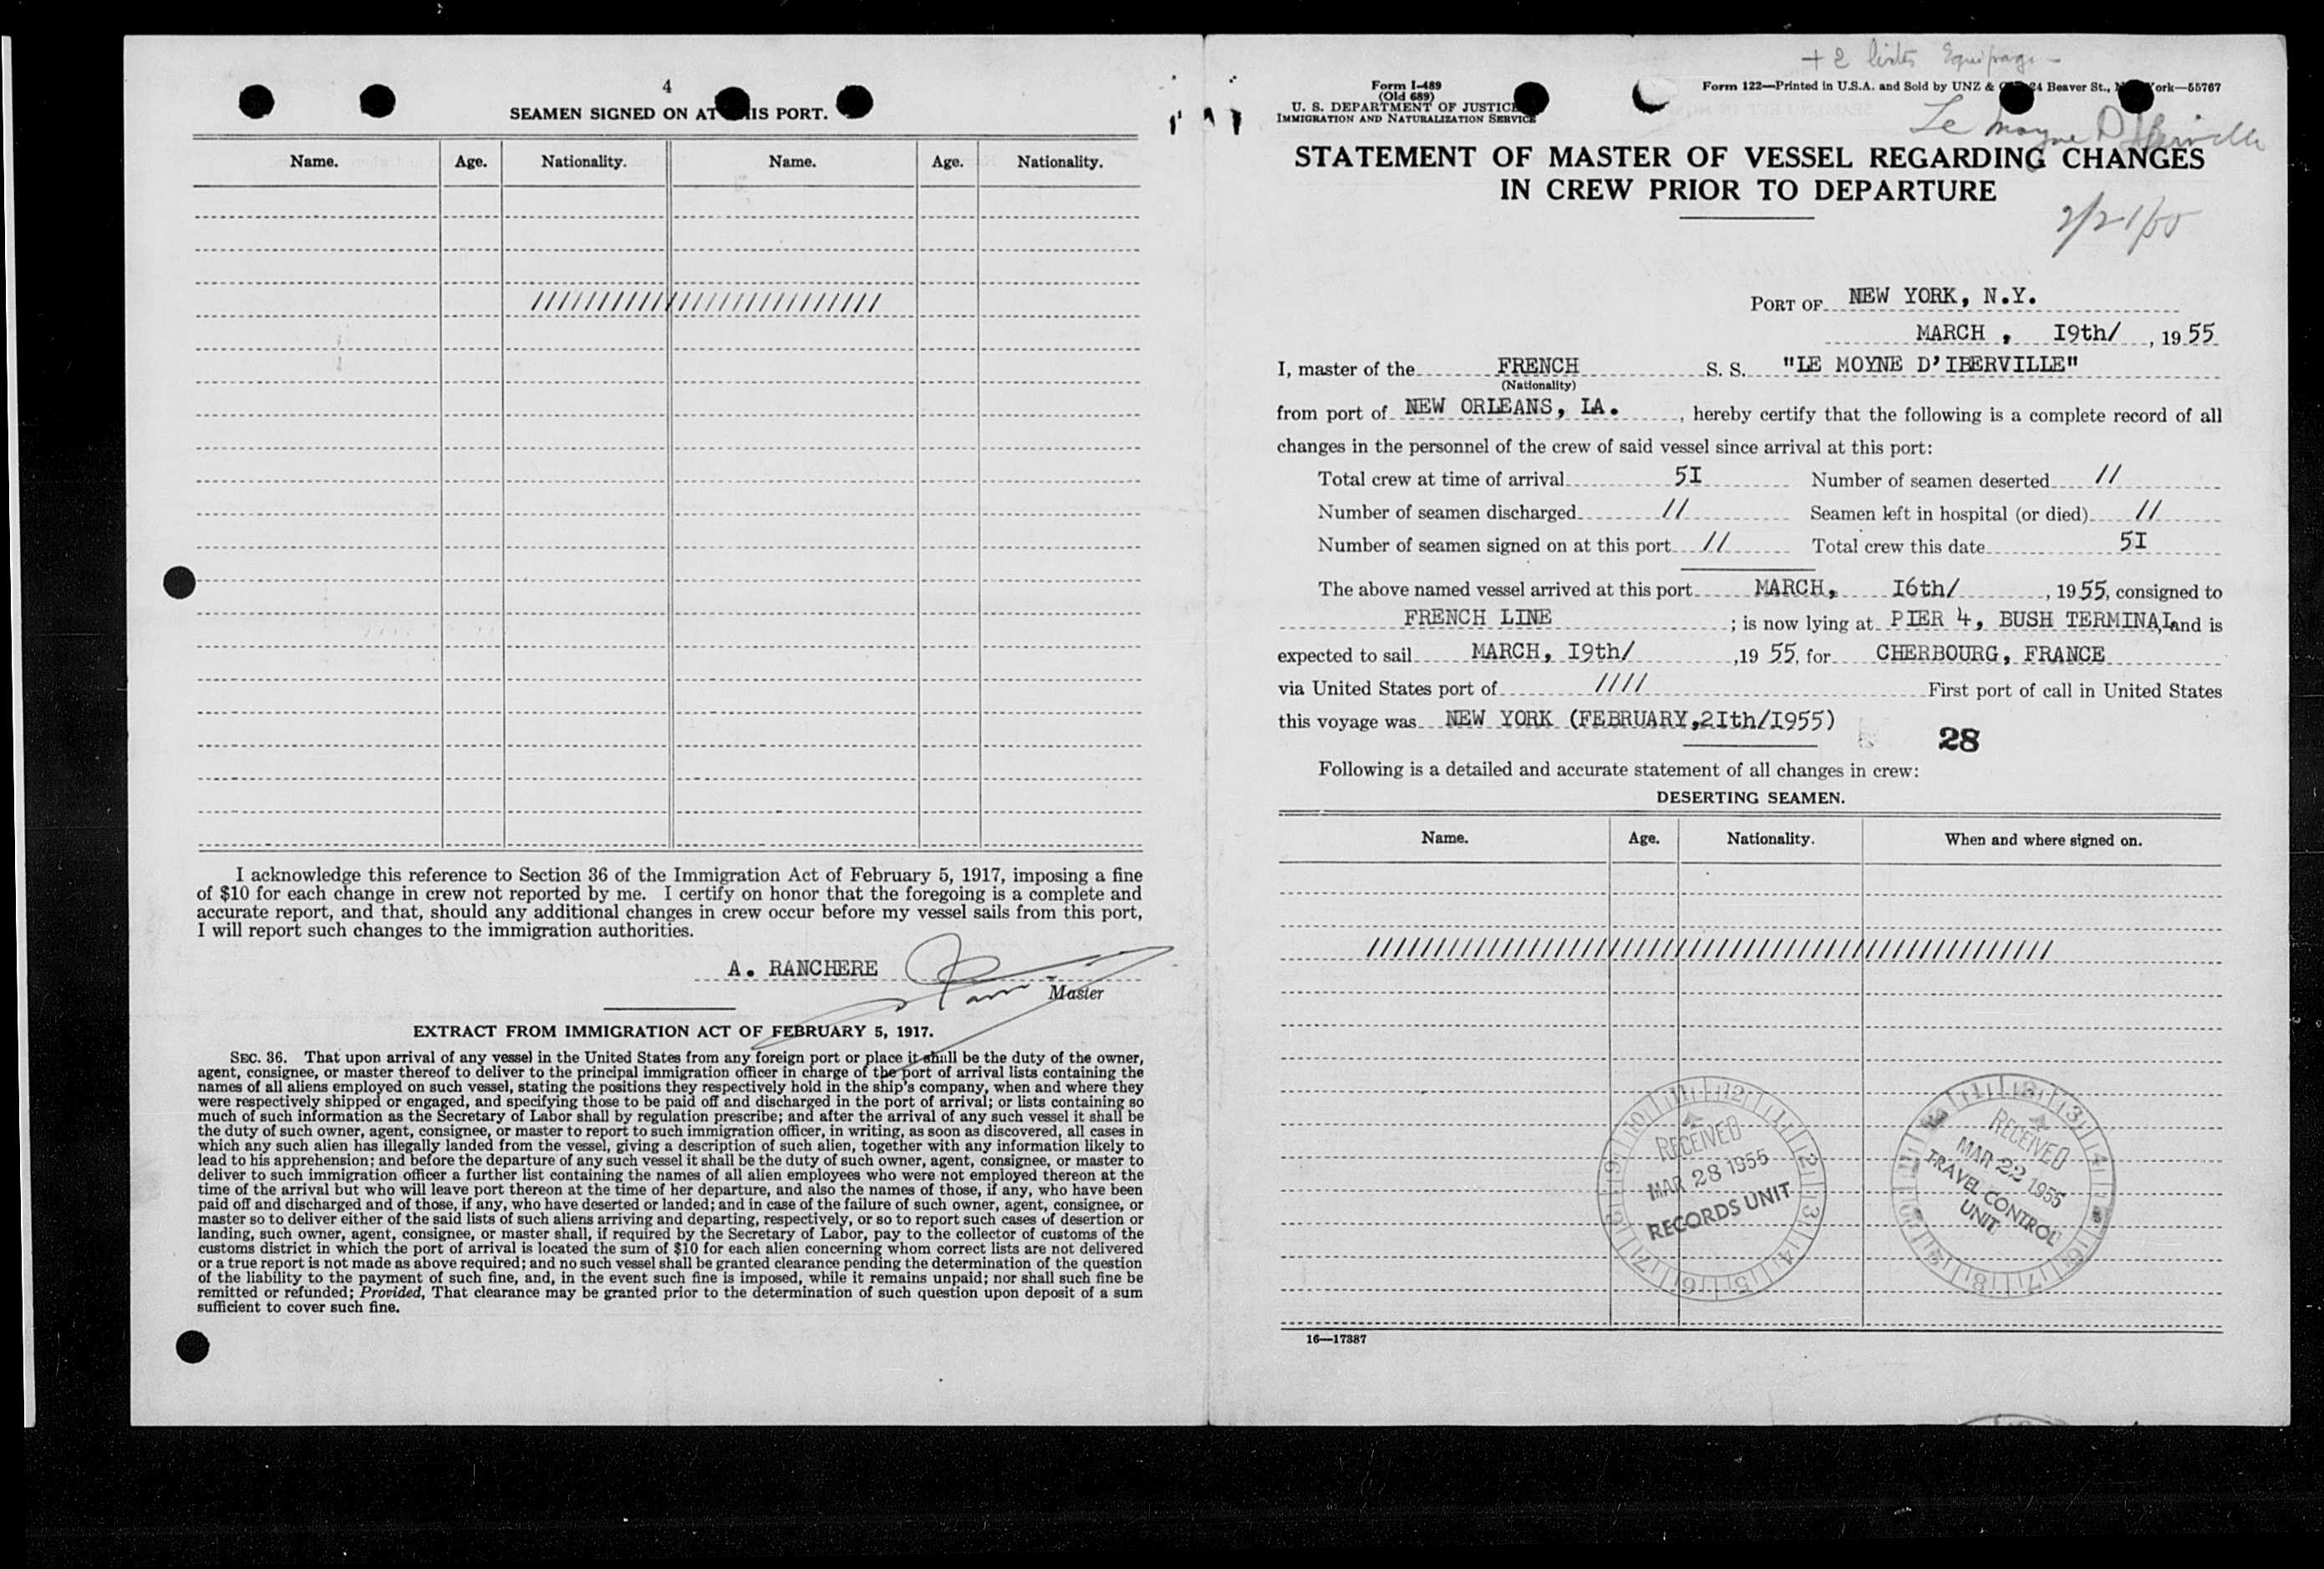 4
SEAMEN SIGNED ON AT THIS PORT.
Name. Age. Nationality. Name. Age. Nationality.
///////////////////////////
I acknowledge this reference to Section 36 of the Immigration Act of February 5, 1917, imposing a fine
of $10 for each change in crew not reported by me. I certify on honor that the foregoing is a complete and
accurate report, and that, should any additional changes in crew occur before my vessel sails from this port,
I will report such changes to the immigration authorities.
A. RANCHERE
Master
EXTRACT FROM IMMIGRATION ACT OF FEBRUARY 5, 1917.
SEC. 36. That upon arrival of any vessel in the United States from any foreign port or place it shall be the duty of the owner,
agent, consignee, or master thereof to deliver to the principal immigration officer in charge of the port of arrival lists containing the
names of all aliens employed on such vessel, stating the positions they respectively hold in the ship's company, when and where they
were respectively shipped or engaged, and specifying those to be paid off and discharged in the port of arrival; or lists containing so
much of such information as the Secretary of Labor shall by regulation prescribe; and after the arrival of any such vessel it shall be
the duty of such owner, agent, consignee, or master to report to such immigration officer, in writing, as soon as discovered, all cases in
which any such alien has illegally landed from the vessel, giving a description of such alien, together with any information likely to
lead to his apprehension; and before the departure of any such vessel it shall be the duty of such owner, agent, consignee, or master to
deliver to such immigration officer a further list containing the names of all alien employees who were not employed thereon at the
time of the arrival but who will leave port thereon at the time of her departure, and also the names of those, if any, who have been
paid off and discharged and of those, if any, who have deserted or landed; and in case of the failure of such owner, agent, consignee, or
master so to deliver either of the said lists of such aliens arriving and departing, respectively, or so to report such cases of desertion or
landing, such owner, agent, consignee, or master shall, if required by the Secretary of Labor, pay to the collector of customs of the
customs district in which the port of arrival is located the sum of $10 for each alien concerning whom correct lists are not delivered
or a true report is not made as above required; and no such vessel shall be granted clearance pending the determination of the question
of the liability to the payment of such fine, and, in the event such fine is imposed, while it remains unpaid; nor shall such fine be
remitted or refunded; Provided, That clearance may be granted prior to the determination of such question upon deposit of a sum
sufficient to cover such fine.
+ 2 listes Equipage
Form I-489
(Old 689)
U. S. DEPARTMENT OF JUSTICE
IMMIGRATION AND NATURALIZATION SERVICE
Form 122—Printed in U.S.A. and Sold by UNZ & 24 Beaver St., York—55767
Le Moyne D'Iberville
STATEMENT OF MASTER OF VESSEL REGARDING CHANGES
IN CREW PRIOR TO DEPARTURE
2/21/55
PORT OF NEW YORK, N.Y.
MARCH , I9th/ , 19 55
I, master of the FRENCH S. S. "LE MOYNE D'IBERVILLE"
(Nationality)
from port of NEW ORLEANS, LA. , hereby certify that the following is a complete record of all
changes in the personnel of the crew of said vessel since arrival at this port:
Total crew at time of arrival 5I Number of seamen deserted //
Number of seamen discharged // Seamen left in hospital (or died) //
Number of seamen signed on at this port // Total crew this date 5I
The above named vessel arrived at this port MARCH, I6th/ , 1955, consigned to
FRENCH LINE ; is now lying at PIER 4, BUSH TERMINAL, and is
expected to sail MARCH, I9th/ ,19 55, for CHERBOURG, FRANCE
via United States port of //// First port of call in United States
this voyage was NEW YORK (FEBRUARY,2Ith/I955)
28
Following is a detailed and accurate statement of all changes in crew:
DESERTING SEAMEN.
Name. Age. Nationality. When and where signed on.
////////////////////////////////////////////////////
RECEIVED
MAR 28 1955
RECORDS UNIT
RECEIVED
MAR 22 1955
TRAVEL CONTROL
UNIT
16—17387